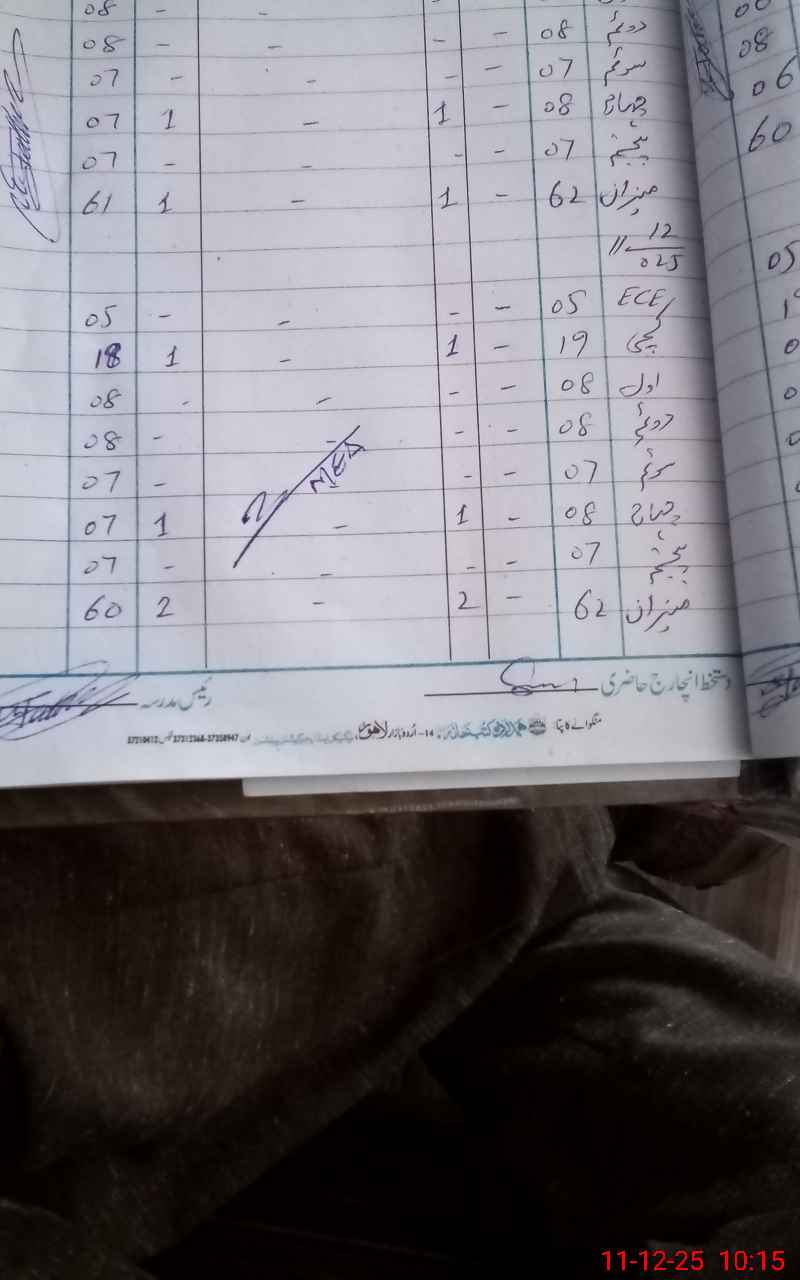 08 - -
دوئم 08 - - - - 08
سوئم 07 - - - - 07
چہارم 08 - 1 - 1 07
پنجم 07 - - - - 07
میزان 62 - 1 - 1 61
11 12/025
ECE 05 - - - - 05
کچی 19 - 1 - 1 18
اول 08 - - - - 08
دوئم 08 - - - - 08
سوئم 07 - - - 07
چہارم 08 - 1 - 1 07
پنجم 07 - - - - 07
میزان 62 - 2 - 2 60
MEA
دستخط انچارج حاضری
رئیس مدرسہ
منگوانے کا پتا:
14-اُردو بازار لاہور
37310412 37312368-37358947
00
08
06
60
05
11-12-25 10:15